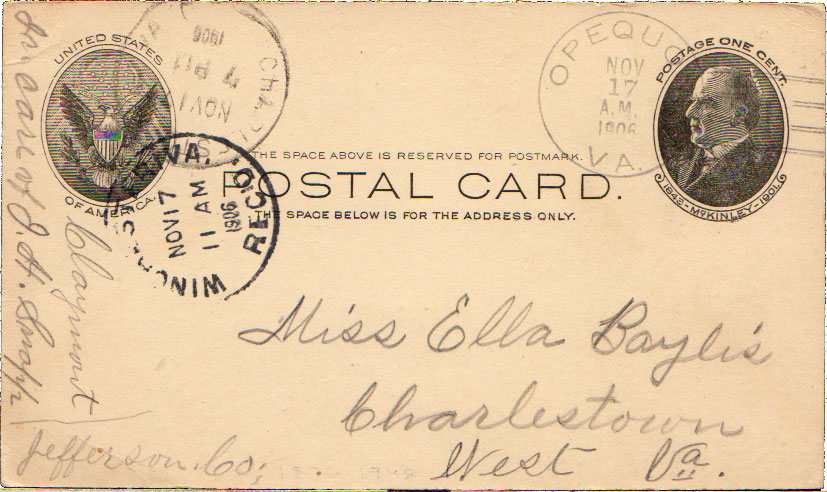 UNITED STATES
OF AMERICA.
CHARLES
NOV 1
7 PM
1906
OPEQUO
NOV
17
A.M.
1906
VA.
POSTAGE ONE CENT.
1843-McKINLEY-1901.
THE SPACE ABOVE IS RESERVED FOR POSTMARK.
POSTAL CARD.
THE SPACE BELOW IS FOR THE ADDRESS ONLY.
WINCHESTER, VA.
NOV 17
11 AM
1906
REC'D.
Miss Ella Baylis
Charlestown
West Va.
In care of J. H. Snapp
Claymont
Jefferson Co;